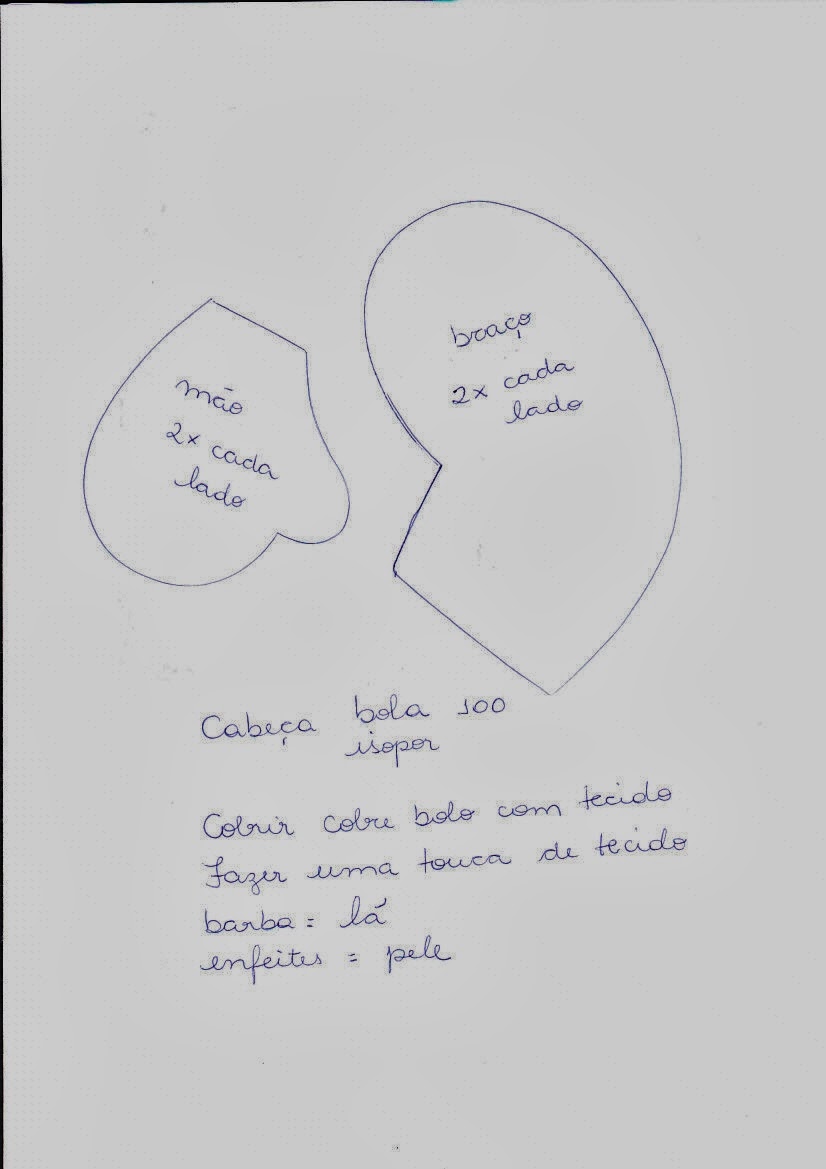 mão
2x cada
lado
braço
2x cada
lado
Cabeça bola 100
isopor
Cobrir cobre bolo com tecido
Fazer uma touca de tecido
barba = lá
enfeites = pele